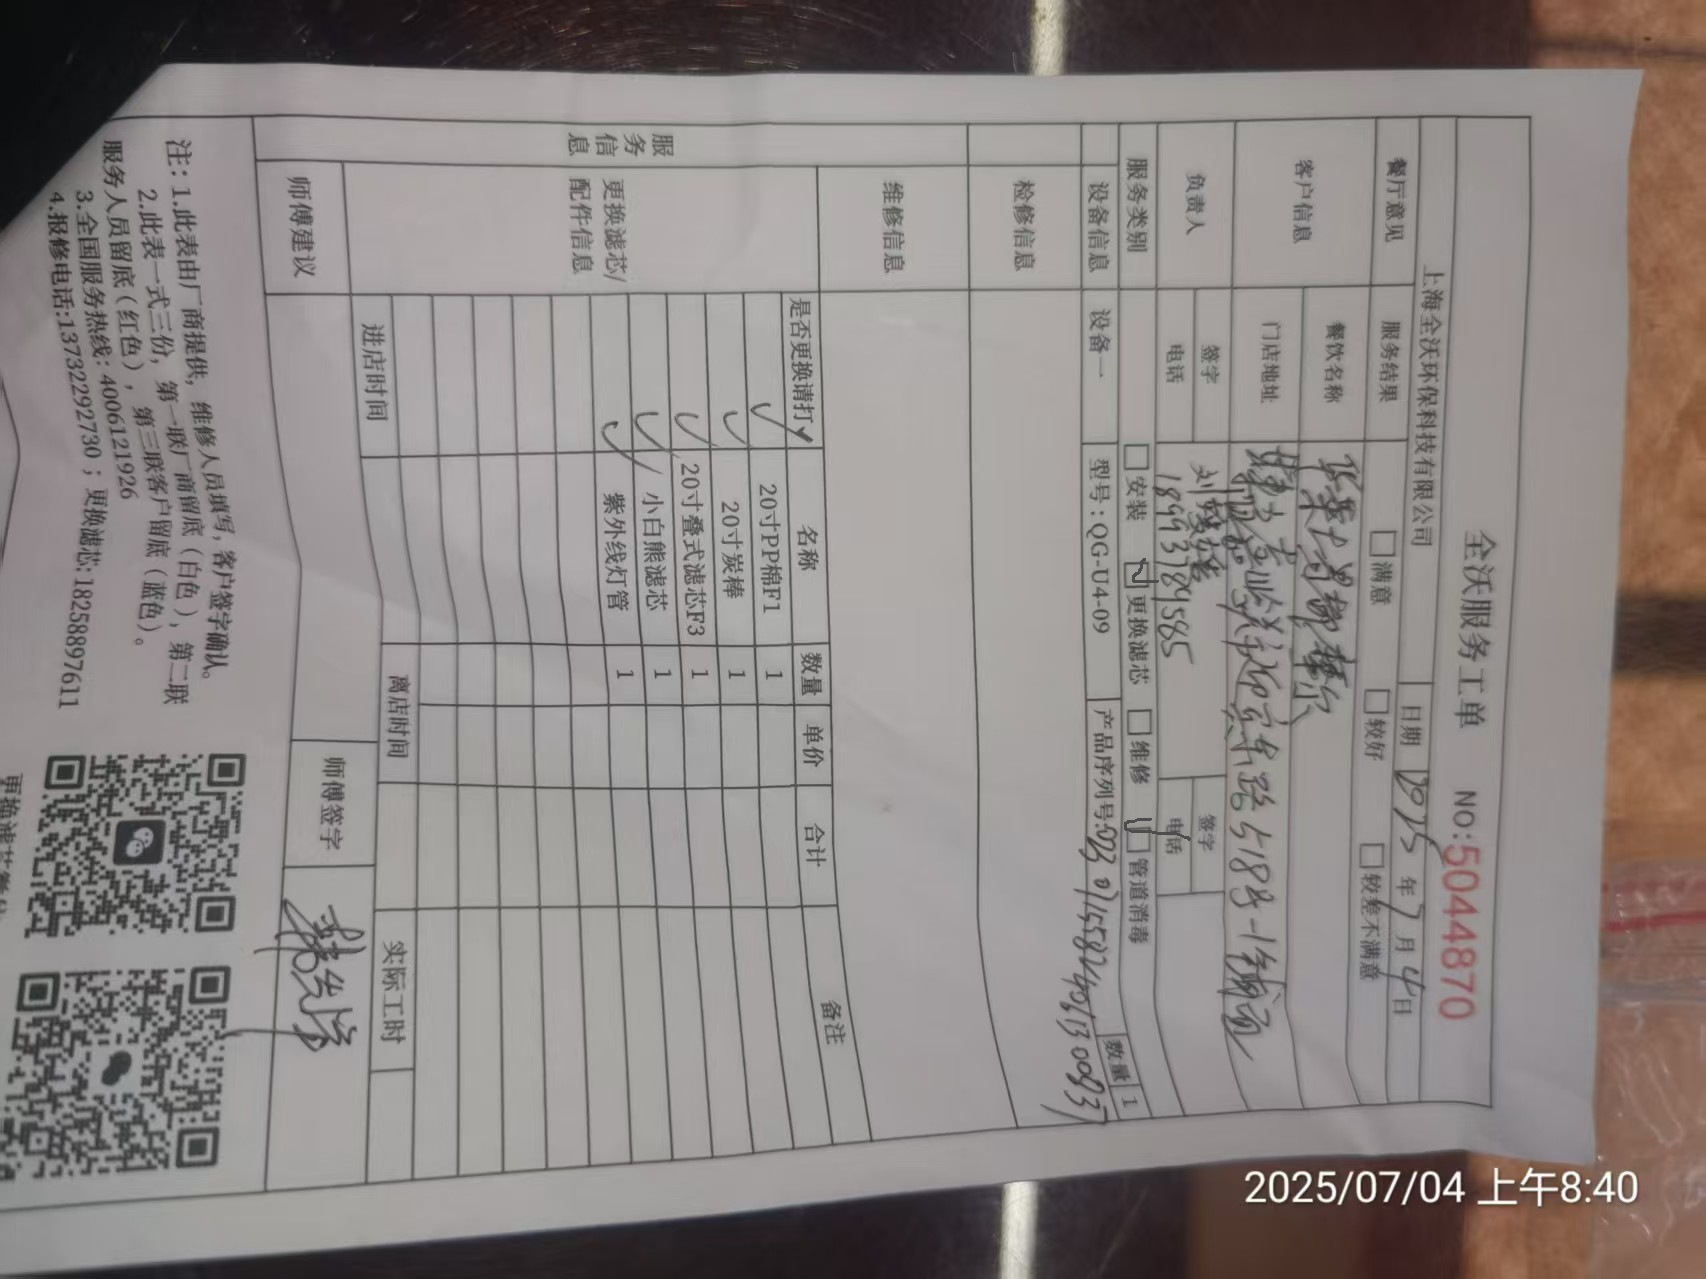 全沃服务工单 NO:5044870
上海全沃环保科技有限公司 日期 2025 年 7 月 4 日
餐厅意见 服务结果 满意 较好 较差不满意
客户信息 餐饮名称
门店地址
负责人 签字 签字
电话 18993789585 电话
服务类别 安装 ✓更换滤芯 维修 ✓管道消毒
设备信息 设备一 型号:QG-U4-09 产品序列号: 数量 1
检修信息
维修信息
服务信息
更换滤芯/配件信息
是否更换请打✓ 名称 数量 单价 合计 备注
✓ 20寸PP棉F1 1
✓ 20寸炭棒 1
✓ 20寸叠式滤芯F3 1
✓ 小白熊滤芯 1
✓ 紫外线灯管 1
进店时间 离店时间 实际工时
师傅建议 师傅签字
注: 1.此表由厂商提供, 维修人员填写, 客户签字确认。
2.此表一式三份, 第一联厂商留底(白色), 第二联
服务人员留底(红色), 第三联客户留底(蓝色)。
3.全国服务热线: 4006121926
4.报修电话:13732292730; 更换滤芯:18258897611
2025/07/04 上午8:40